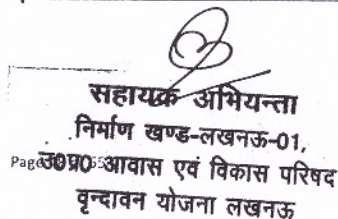 सहायक अभियन्ता
निर्माण खण्ड-लखनऊ-01,
Page उ0प्र0 आवास एवं विकास परिषद
वृन्दावन योजना लखनऊ